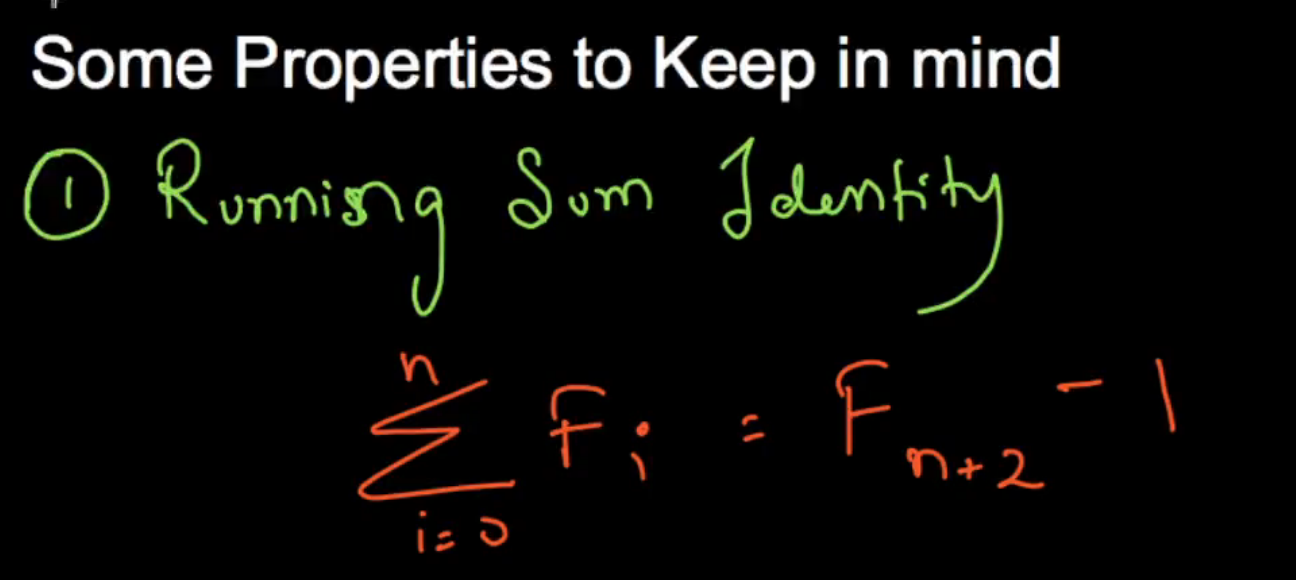 Some Properties to Keep in mind
① Running Sum Identity
n
∑ Fᵢ = Fₙ₊₂ - 1
i=0